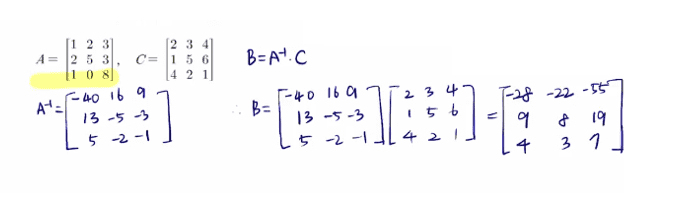 A = [1 2 3; 2 5 3; 1 0 8], C = [2 3 4; 1 5 6; 4 2 1] B = A⁻¹·C
A⁻¹ = [-40 16 9; 13 -5 -3; 5 -2 -1] ∴ B = [-40 16 9; 13 -5 -3; 5 -2 -1] [2 3 4; 1 5 6; 4 2 1] = [-28 -22 -55; 9 8 19; 4 3 7]